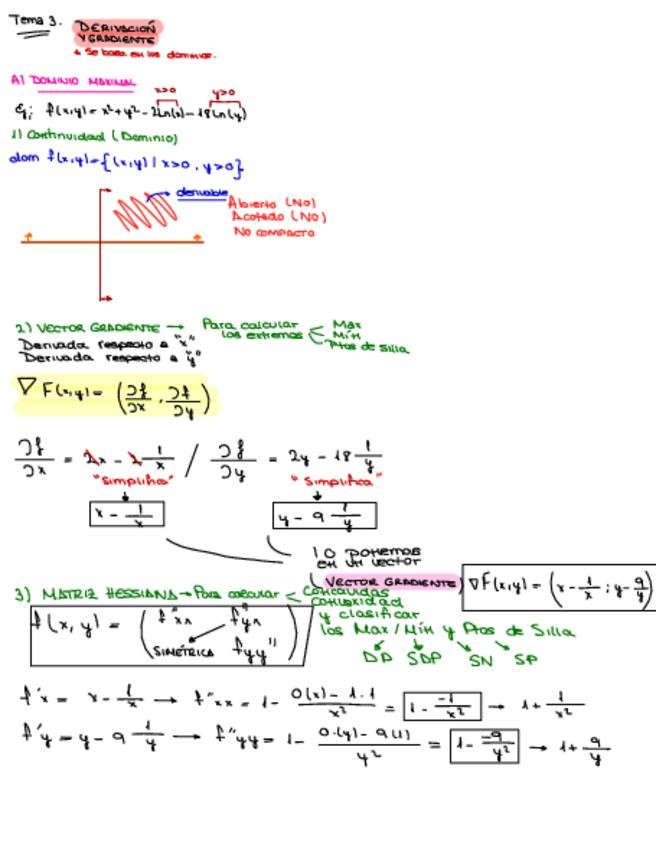 Tema 3. DERIVACIÓN
Y GRADIENTE
* Se basa en los dominios.
A) DOMINIO MAXIMAL
x>0 y>0
Ej: f(x,y) = x² + y² - 2Ln(x) - 18Ln(y)
1) Continuidad (Dominio)
dom f(x,y) = {(x,y) / x>0, y>0}
derivable
Abierto (NO)
Acotado (NO)
NO COMPACTO
2) VECTOR GRADIENTE → Para calcular los extremos < Máx
Mín
Ptos de Silla
Derivada respecto a "x"
Derivada respecto a "y"
∇F(x,y) = (∂f/∂x , ∂f/∂y)
∂f/∂x = 2x - 2 1/x / ∂f/∂y = 2y - 18 1/y
"simplifica" "simplifica"
x - 1/x y - 9 1/y
lo ponemos
en un vector
(VECTOR GRADIENTE) ∇F(x,y) = (x - 1/x ; y - 9/y)
3) MATRIZ HESSIANA → Para calcular < Concavidad
Convexidad
y clasificar
los Max/Mín y Ptos de Silla
DP SDP SN SP
f(x,y) = (f''xx f''yx
SIMÉTRICA f''yy)
f'x = x - 1/x → f''xx = 1 - 0(x) - 1·1 / x² = 1 - -1/x² → 1 + 1/x²
f'y = y - 9 1/y → f''yy = 1 - 0·(y) - 9(1) / y² = 1 - -9/y² → 1 + 9/y